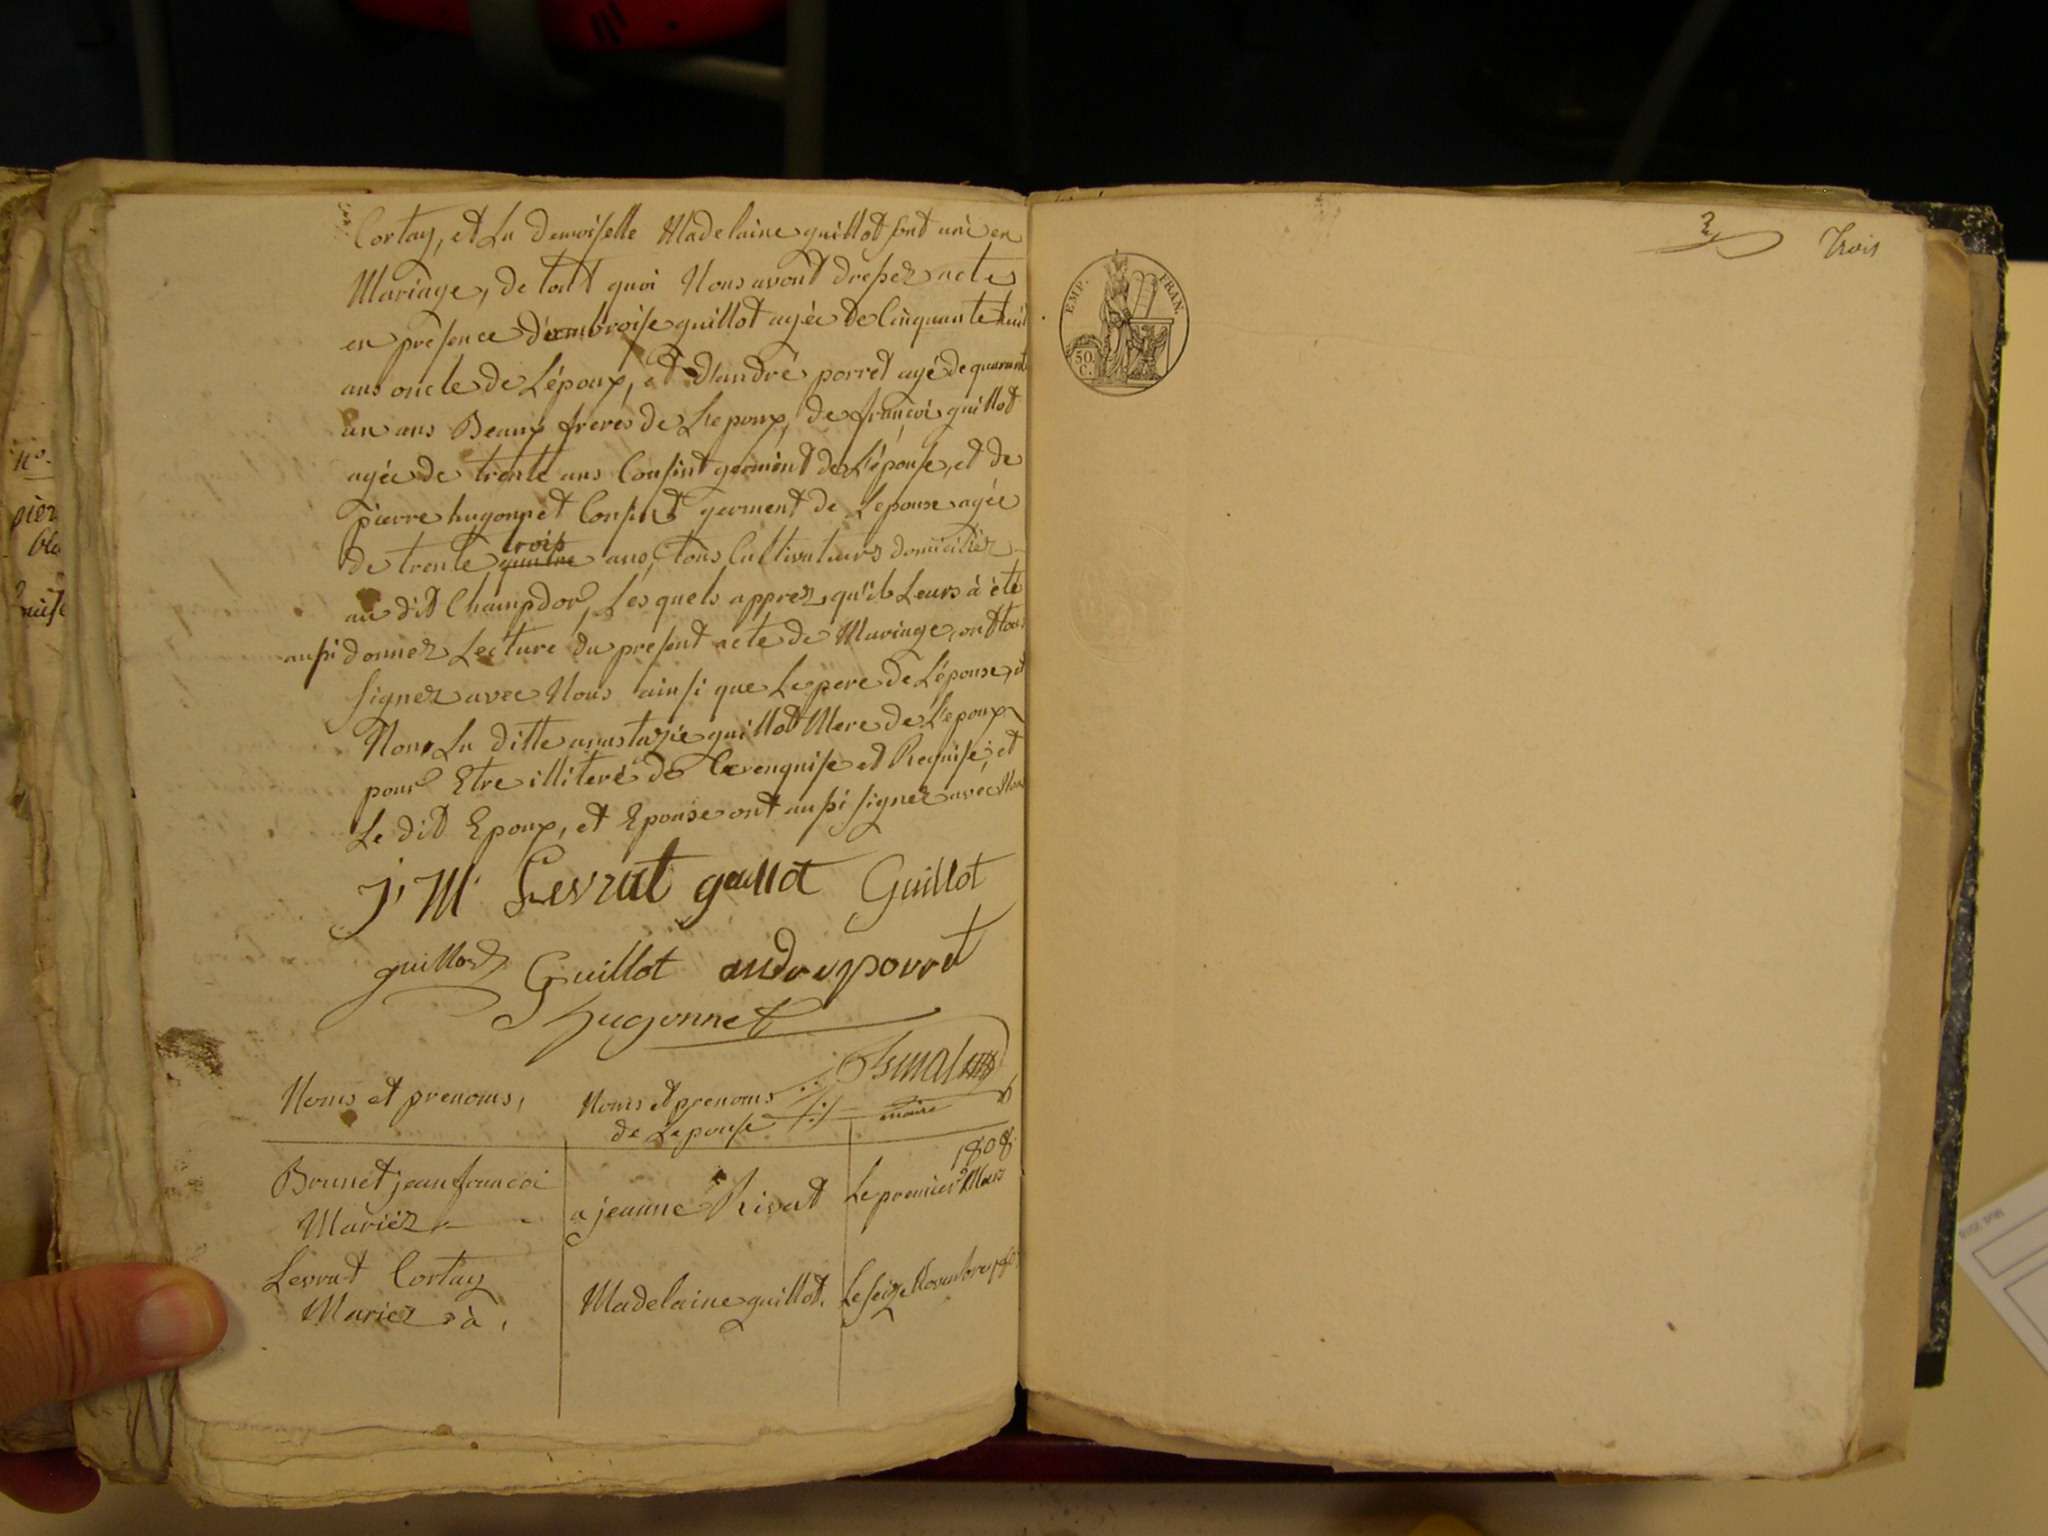 Cortay, et La demoiselle Madelaine guillot sont uni en
Mariage, de tout quoi Nous avont dressez acte
en présence d'ambroise guillot agée de Cinquante huit
ans oncle de L'époux, et d'andré porret agé de quarante
un ans Beaux freres de L'epoux, de françoi guillot
agée de trente ans Consint germint de L'épouse, et de
pierre hugonnet Consint germent de Lepouse agée
trois
de trente quatre ans, tous Cultivateurs domiciliéz
au dit Champdor, Les quels apprez qu'il Leurs à été
aussi donnez Lecture du present acte de Mariage, ont tous
signez avec Nous ainsi que Le pere de L'épouse, et
Non La ditte anastazie guillot Mere de L'epoux
pour Etre illiteré de Ce enquise et Requise, et
Le dit Epoux, et Epouse ont aussi signez avec Nous
J. M. Levrat guillot Guillot
guillot Guillot andre porret
hugonnet
maire
Noms et prenoms,
Noms et prenoms
de Lepouse
Brunet jean françoi
Mariéz
a jeanne Rivat
1808
Le premier Mars
Levrat Cortay
Mariez à,
Madelaine guillot.
Le seize Novembre
EMP. FRAN.
50
C.
3
Trois